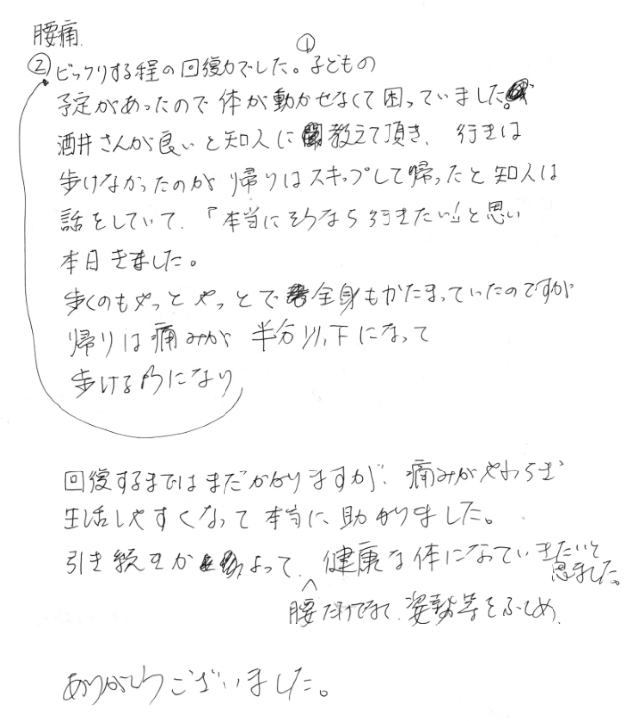 腰痛
①
②ビックリする程の回復力でした。子どもの
予定があったので体が動かせなくて困っていました。
酒井さんが良いと知人に教えて頂き、行きは
歩けなかったのが帰りはスキップして帰ったと知人は
話をしていて、「本当にそうなら行きたい!」と思い
本日きました。
歩くのもやっとやっとで全身もかたまっていたのですが
帰りは痛みが半分以下になって
歩けるようになり
回復するまではまだかかりますが、痛みがやわらぎ
生活しやすくなって本当に助かりました。
引き続きかよって、健康な体になっていきたいと
思いました。
腰だけでなく、姿勢等をふくめ、
ありがとうございました。